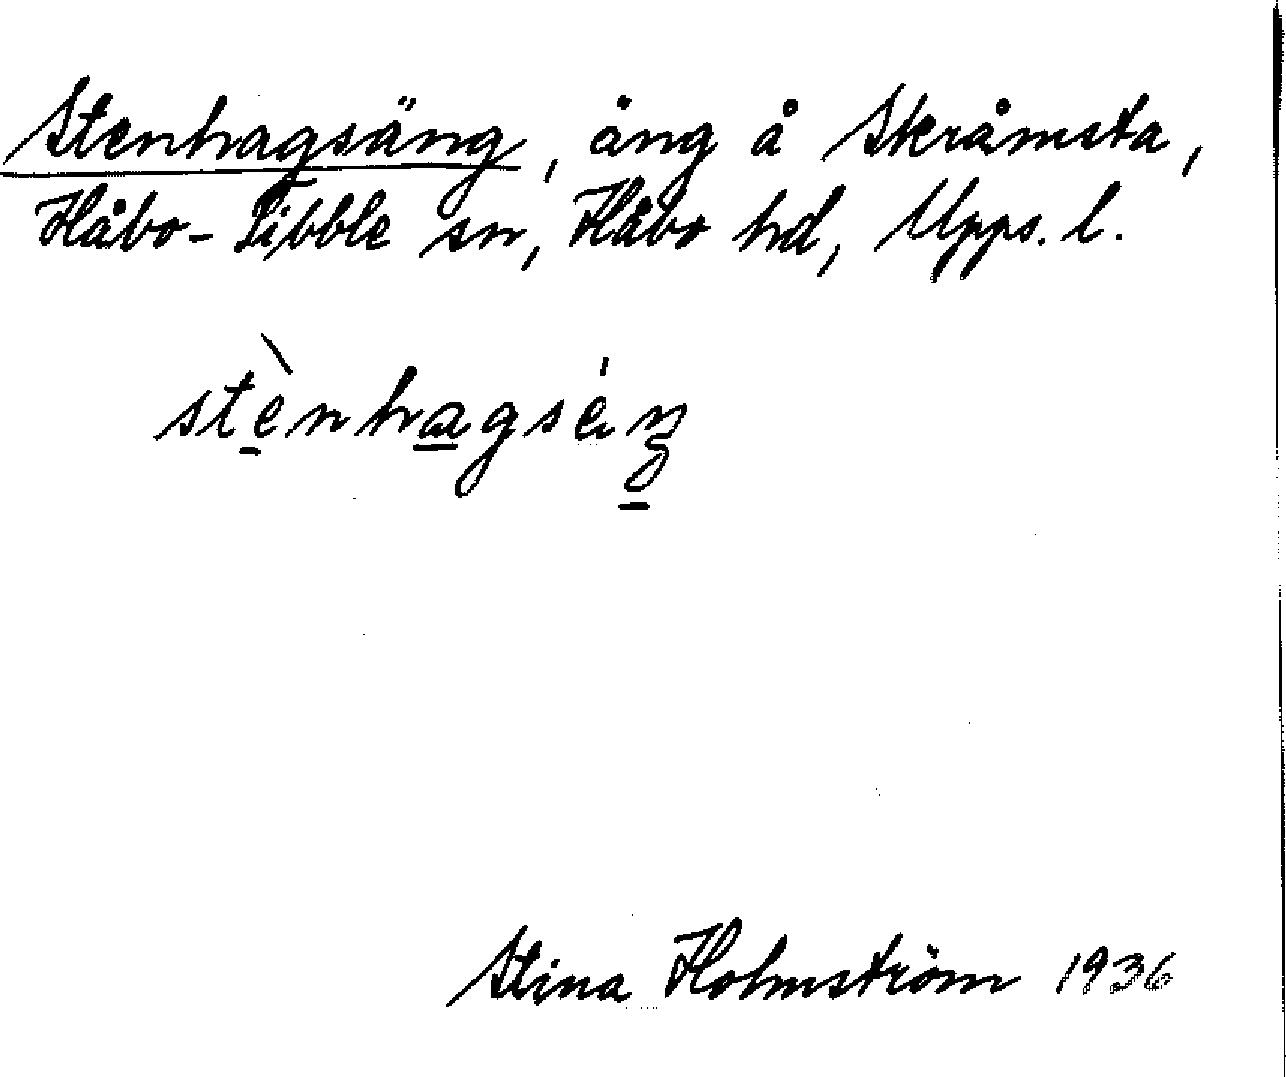 Stenhagsäng, äng å Skråmsta,
Håbo-Tibble sn, Håbo hd, Upps. l.
stènhagséŋ
Stina Holmström 1936